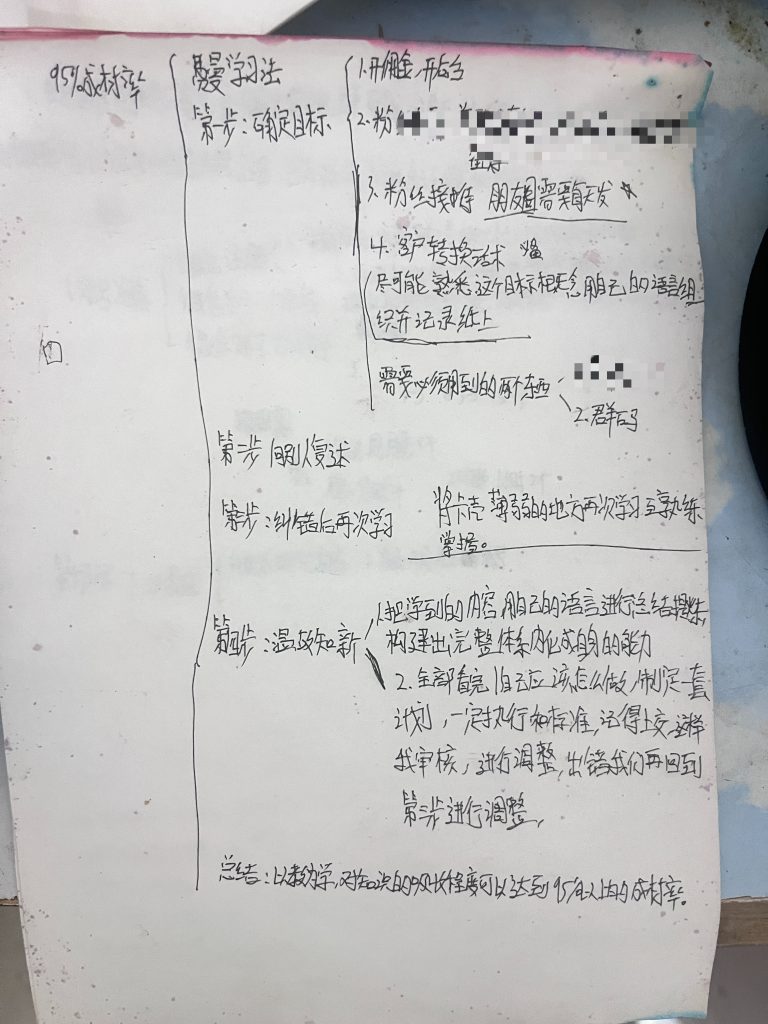 95%成材率
费曼学习法
第一步：确定目标
1.开佣金，开后台
2.粉
3.粉丝接待 朋友圈需要每天发
4.客户转换话术
尽可能熟悉这个目标概念用自己的语言组
织并记录纸上
需要必须用到的两个东西
2.群码
第二步 向别人复述
第三步：纠错后再次学习
将卡壳薄弱的地方再次学习至熟练
掌握。
第四步：温故知新
1.把学到的内容用自己的语言进行总结提炼，
构建出完整体系内化成自身的能力
2.全部看完 自己应该怎么做，制定一套
计划，一定执行和标准，记得上交，这样
我审核，进行调整，出错我们再回到
第三步进行调整，
总结：以教为学，对知识的吸收程度可以达到95%以上的成材率。